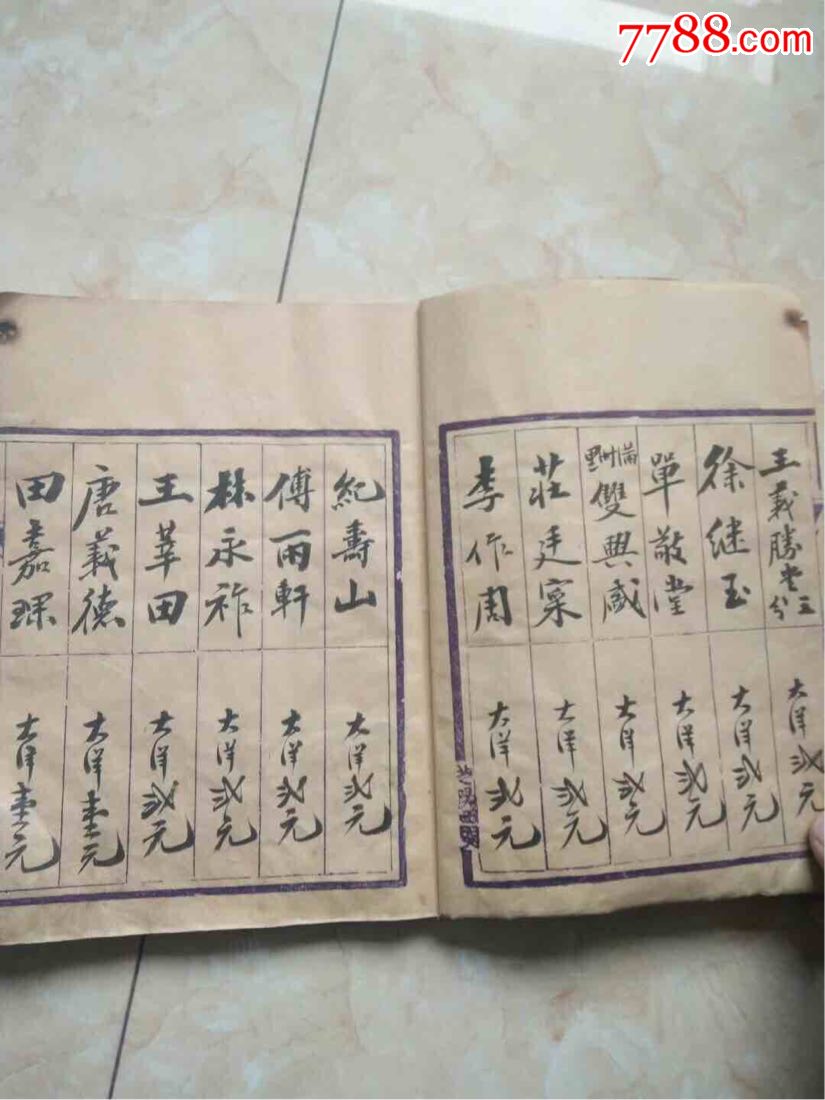 7788.com
王義勝堂三分
大洋弍元
徐继玉
大洋弍元
單敬堂
大洋弍元
满州里
雙興盛
大洋弍元
莊廷寀
大洋弍元
李作周
大洋弍元
紀壽山
大洋弍元
傅雨軒
大洋弍元
林永祚
大洋弍元
王莘田
大洋弍元
唐義德
大洋壹元
田嘉琛
大洋壹元